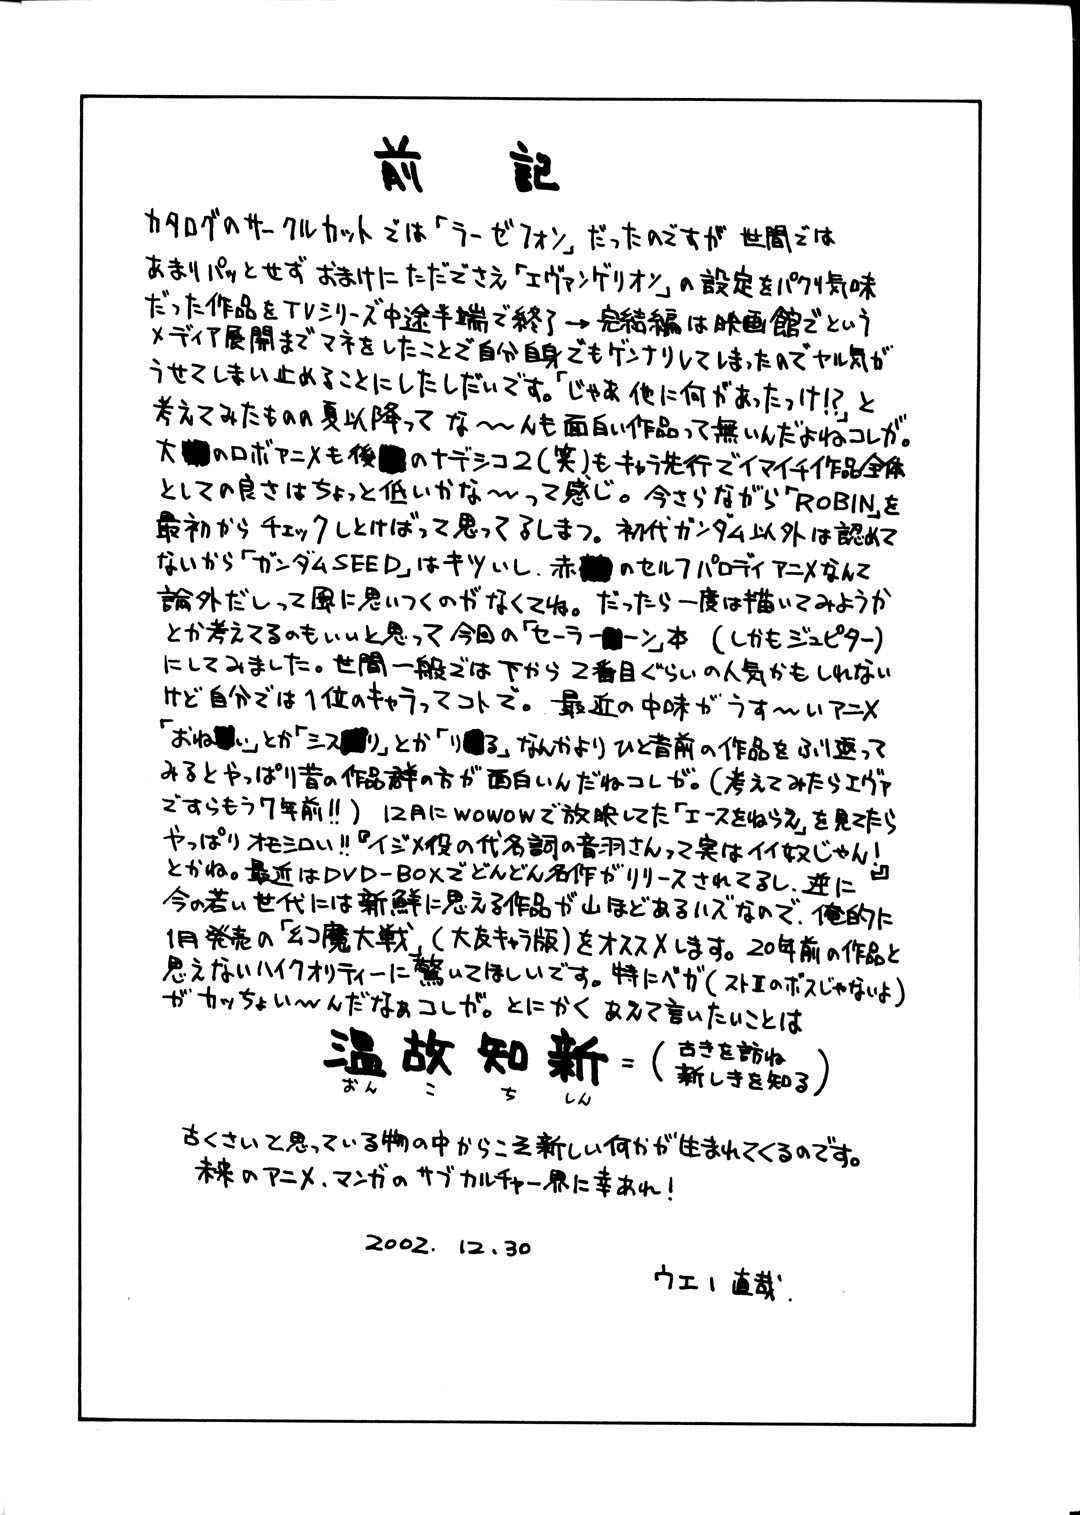 前記
カタログのサークルカットでは「ラーゼフォン」だったのですが 世間では
あまりパッとせず おまけに ただでさえ「エヴァンゲリオン」の設定をパクリ気味
だった作品をTVシリーズ中途半端で終了→完結編は映画館でという
メディア展開までマネをしたことで自分自身でもゲンナリしてしまったのでヤル気が
うせてしまい止めることにしたしだいです。「じゃあ他に何があったっけ!?」と
考えてみたものの夏以降って な〜〜んも面白い作品って無いんだよねコレが。
大■のロボアニメも後■のナデシコ2(笑)もキャラ先行でイマイチ作品全体
としての良さはちょっと低いかな〜〜って感じ。今さらながら「ROBIN」を
最初から チェックしとけばって思ってるしまつ。初代ガンダム以外は認めて
ないから「ガンダムSEED」はキツいし、赤■のセルフパロディアニメなんて
論外だしって風に思いつくのがなくてね。だったら一度は描いてみようか
とか考えてるのもいいと思って今回の「セーラー■ーン」本 (しかもジュピター)
にしてみました。世間一般では下から2番目ぐらいの人気かもしれない
けど自分では1位のキャラってコトで。最近の中味がうす〜いアニメ
「おね■い」とか「シス■リ」とか「リ■る」なんかよりひと昔前の作品をふり返って
みるとやっぱり昔の作品群の方が面白いんだねコレが。(考えてみたらエヴァ
ですらもう7年前!!) 12月にWOWOWで放映してた「エースをねらえ」を見てたら
やっぱりオモシロい!!『イジメ役の代名詞の音羽さんって実はイイ奴じゃん!』
とかね。最近はDVD-BOXでどんどん名作がリリースされてるし、逆に
今の若い世代には新鮮に思える作品が山ほどあるハズなので、俺的に
1月発売の「幻魔大戦」(大友キャラ版)をオススメします。20年前の作品と
思えないハイクオリティーに驚いてほしいです。特にベガ(ストⅡのボスじゃないよ)
がカッちょい〜〜んだなぁコレが。とにかく あえて言いたいことは
温故知新=(古きを訪ね
新しきを知る)
おん こ ち しん
古くさいと思っている物の中からこそ新しい何かが生まれてくるのです。
未来のアニメ、マンガのサブカルチャー界に幸あれ!
2002. 12.30
ウエー直哉.